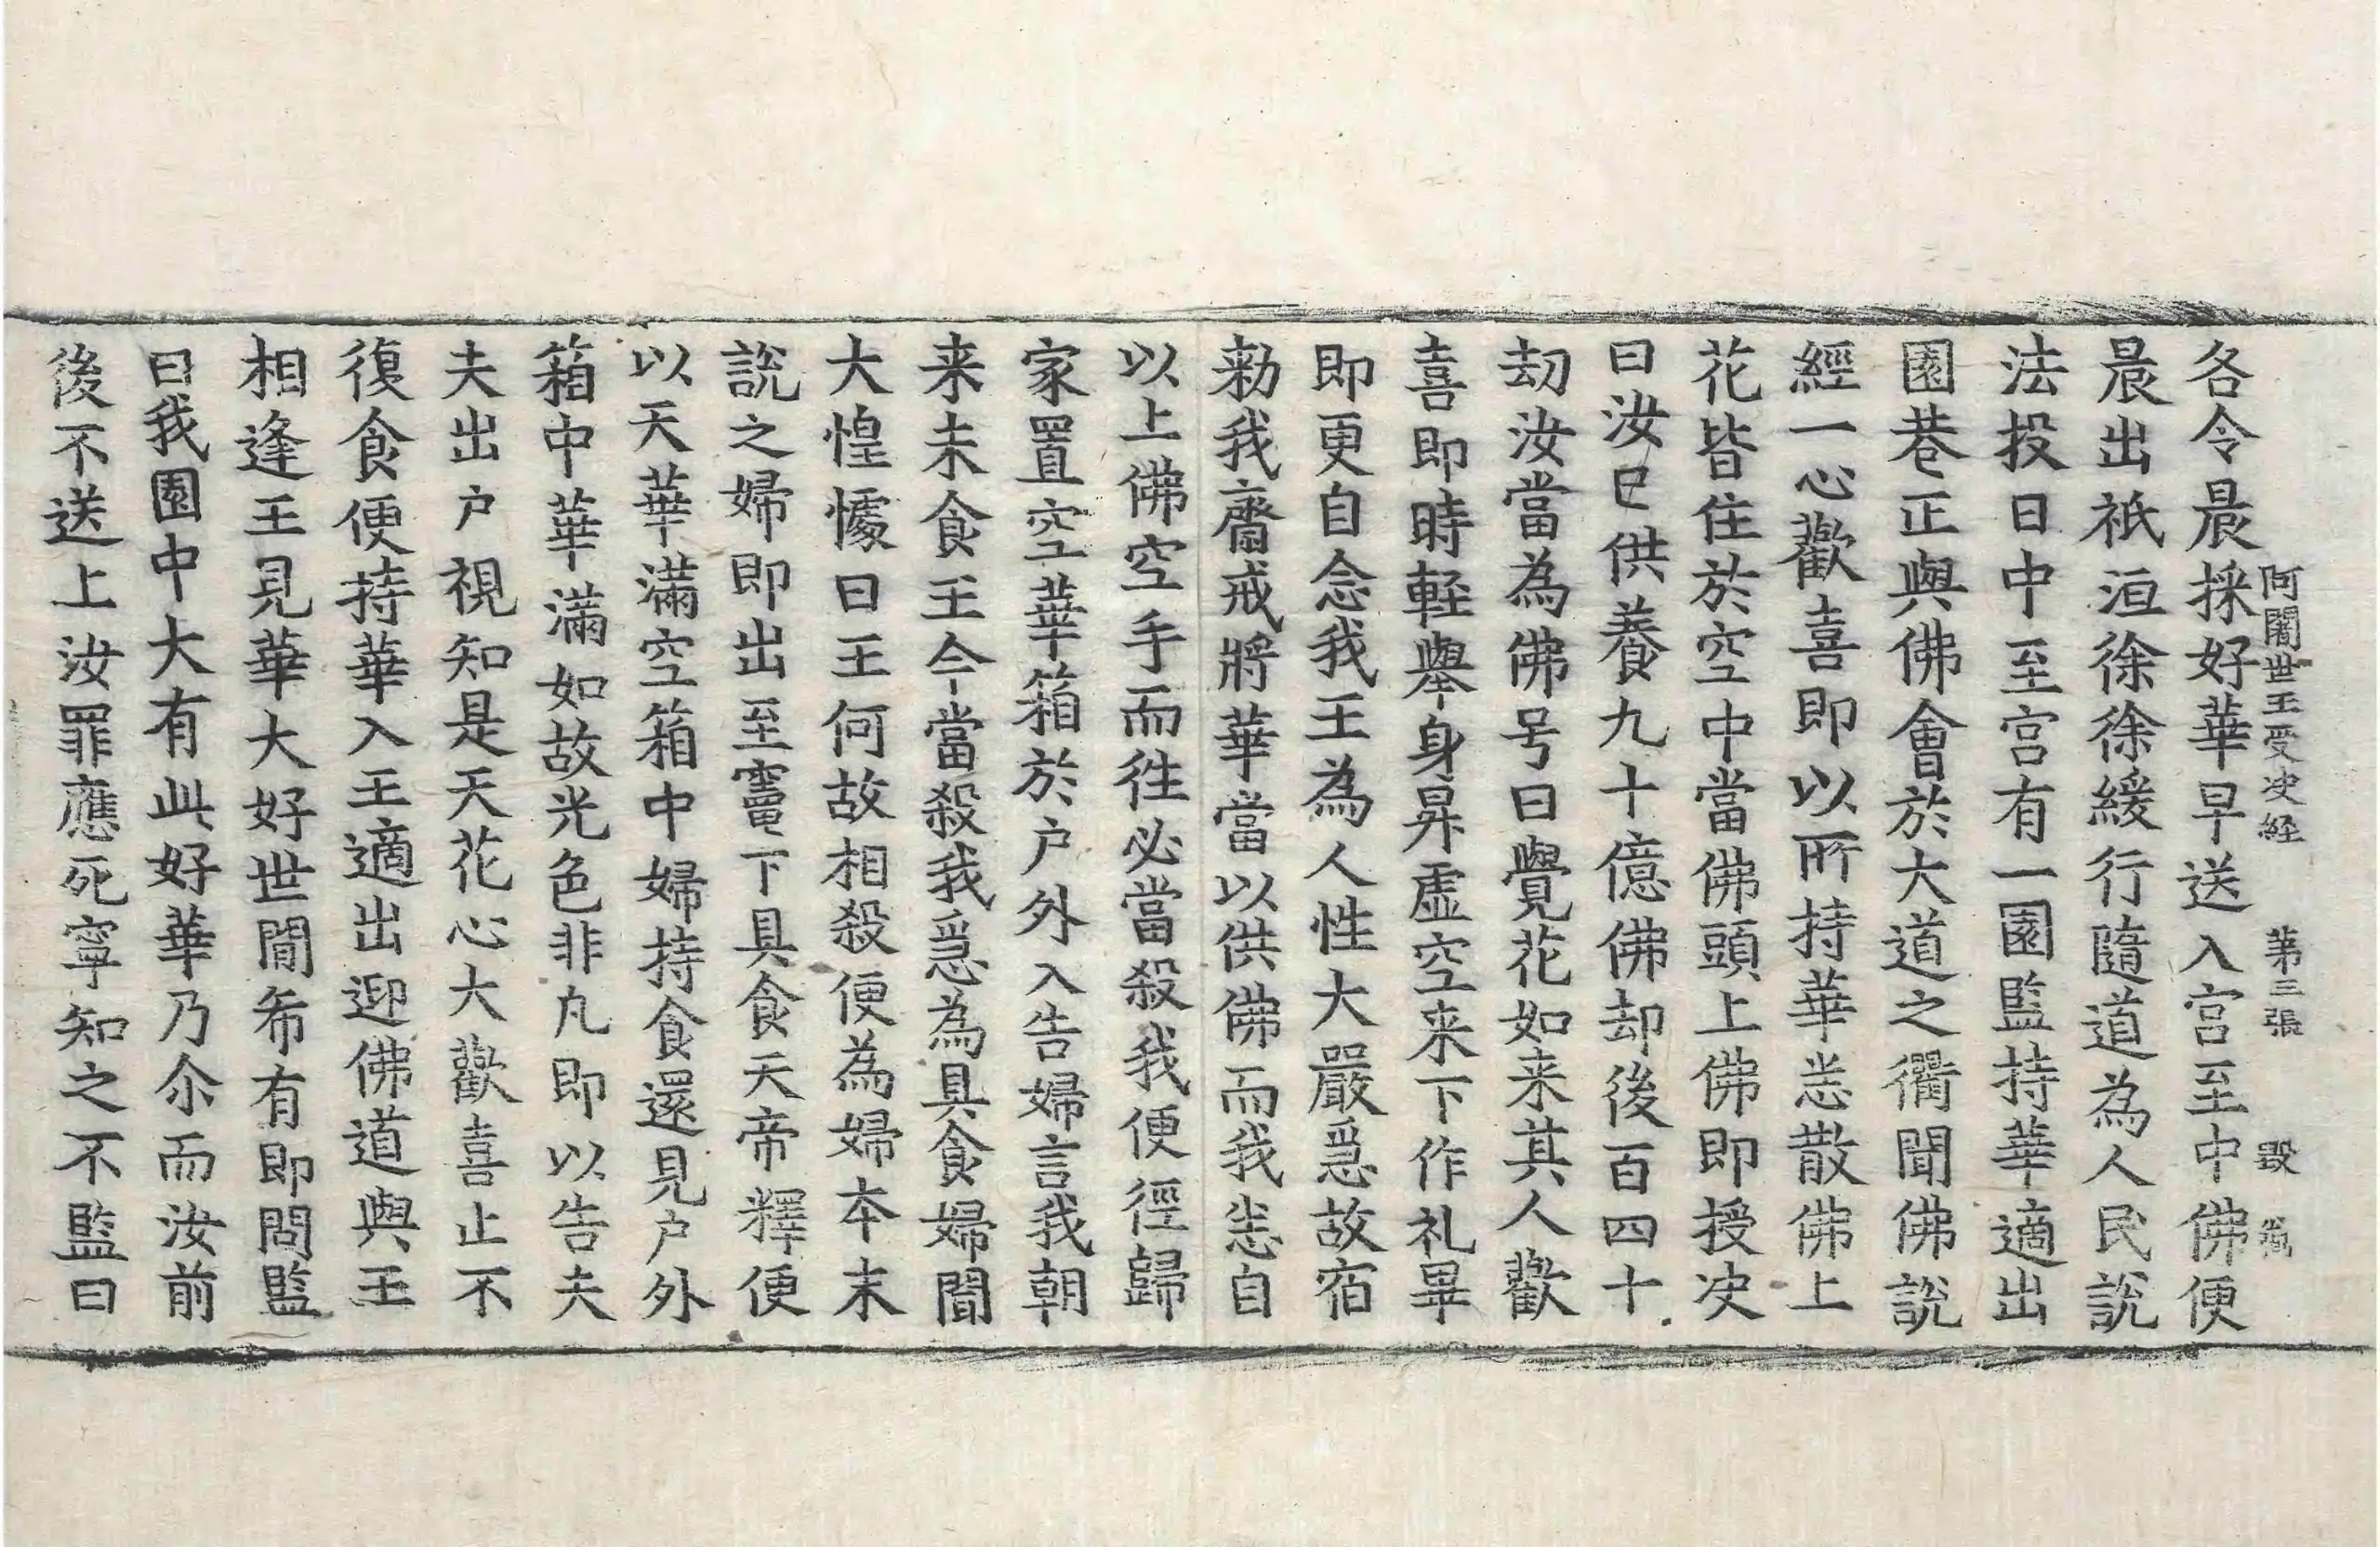 阿闍世王受决経 第三張 毀
各令晨採好華早送入宫至中佛便
晨出祇洹徐徐緩行隨道為人民説
法投日中至宫有一園監持華適出
園巷正與佛會於大道之衢聞佛説
經一心歡喜即以所持華悉散佛上
花皆住於空中當佛頭上佛即授决
曰汝已供養九十億佛却後百四十
刧汝當為佛号曰覺花如来其人歡
喜即時輕舉身昇虚空来下作礼畢
即更自念我王為人性大嚴急故宿
勑我齋戒將華當以供佛而我悉自
以上佛空手而徃必當殺我便徑歸
家置空華箱於户外入告婦言我朝
来未食王今當殺我急為具食婦聞
大惶懅曰王何故相殺便為婦本末
説之婦即出至竈下具食天帝釋便
以天華滿空箱中婦持食還見户外
箱中華滿如故光色非凡即以告夫
夫出户視知是天花心大歡喜止不
復食便持華入王適出迎佛道與王
相逢王見華大好世間希有即問監
曰我園中大有此好華乃尒而汝前
後不送上汝罪應死寧知之不監曰